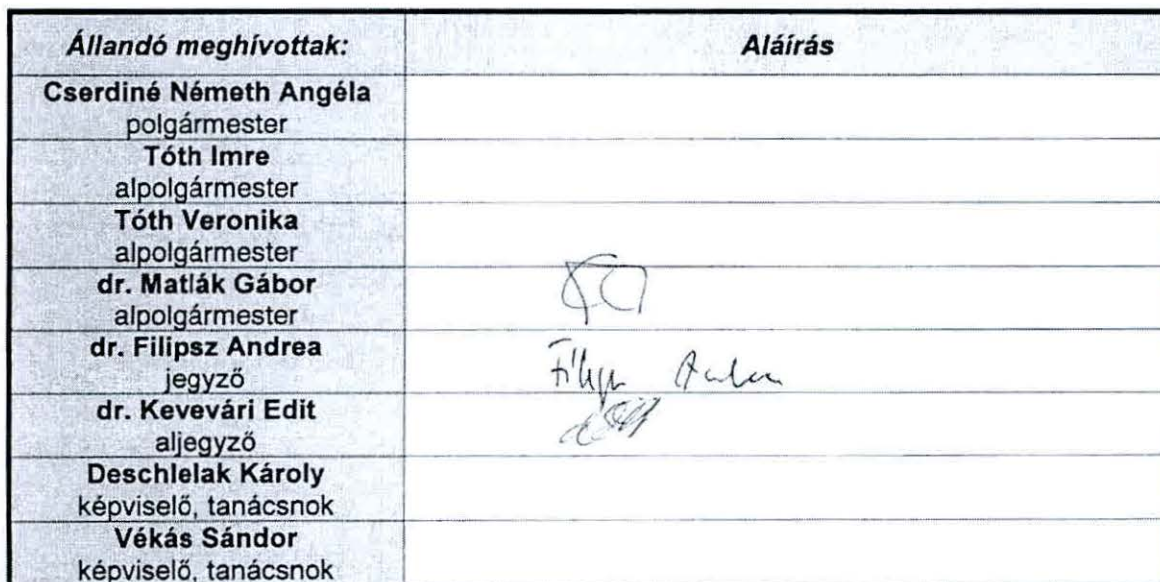 Állandó meghívottak: Aláírás
Cserdiné Németh Angéla
polgármester
Tóth Imre
alpolgármester
Tóth Veronika
alpolgármester
dr. Matlák Gábor
alpolgármester
dr. Filipsz Andrea
jegyző
dr. Kevevári Edit
aljegyző
Deschlelak Károly
képviselő, tanácsnok
Vékás Sándor
képviselő, tanácsnok